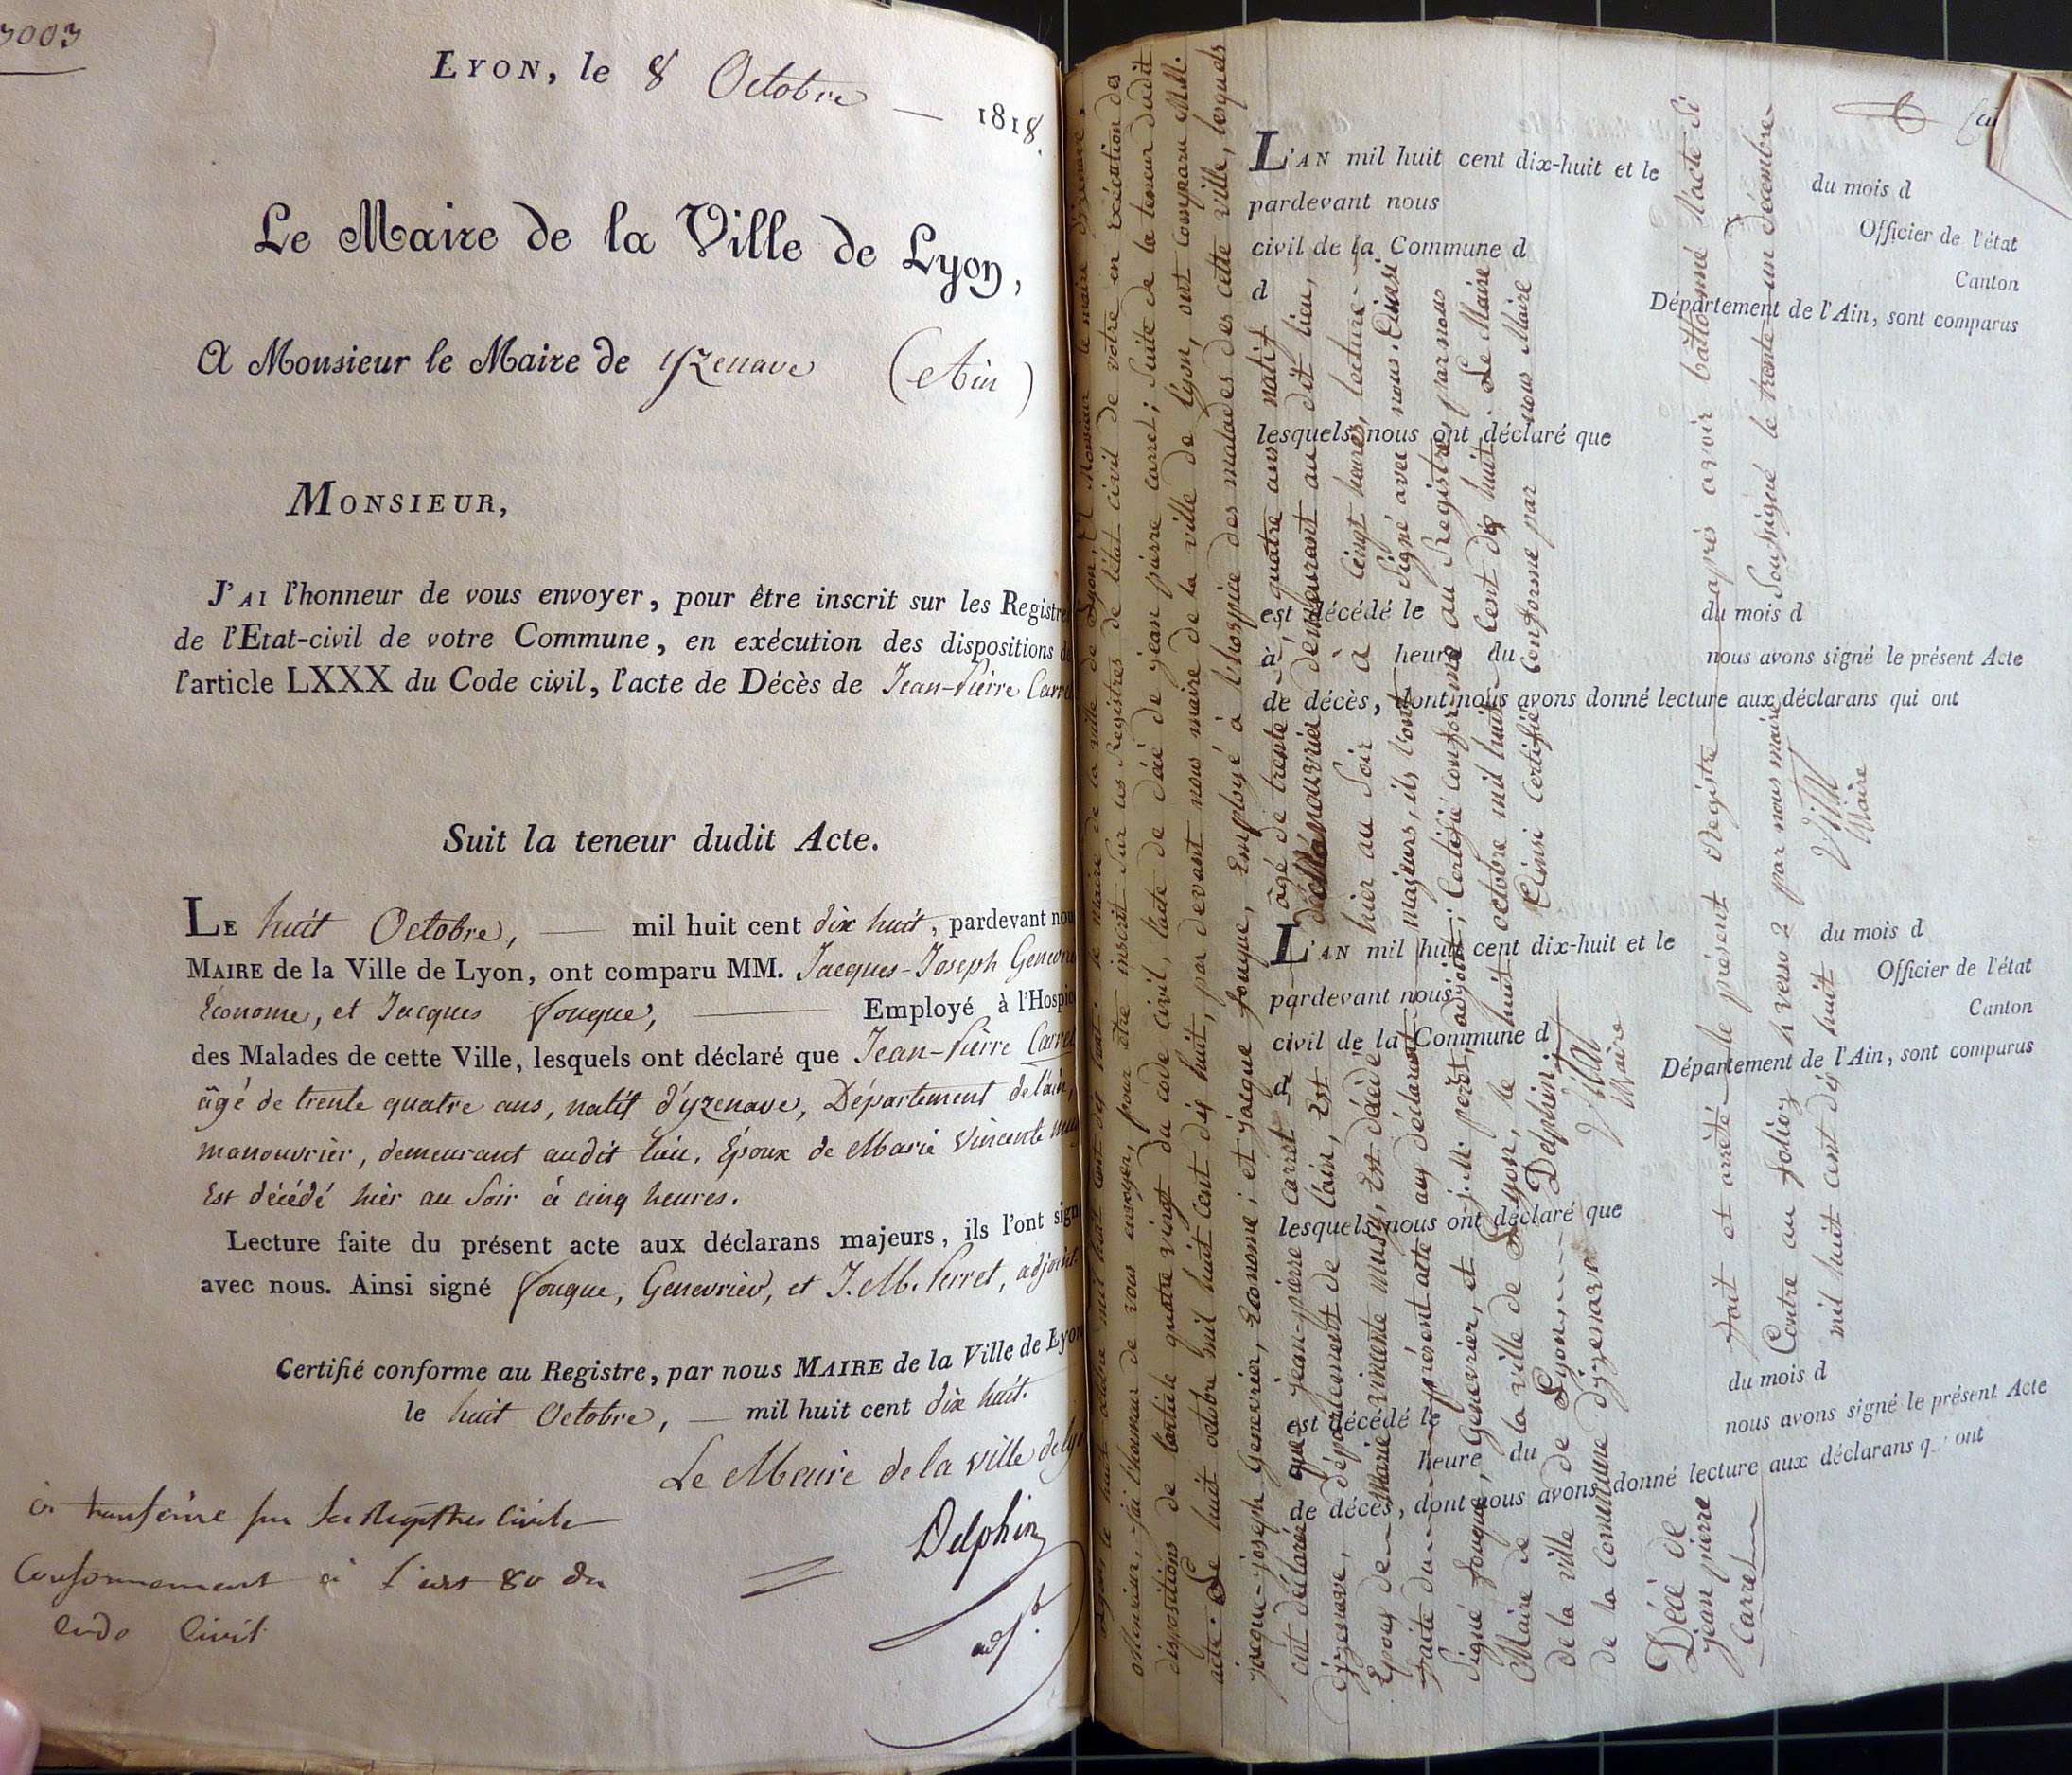 3003
LYON, le 8 Octobre — 1818.
Le Maire de la Ville de Lyon,
A Monsieur le Maire de yzenave (Ain)
MONSIEUR,
J'AI l'honneur de vous envoyer, pour être inscrit sur les Registre
de l'Etat-civil de votre Commune, en exécution des dispositions d
l'article LXXX du Code civil, l'acte de Décès de Jean-Pierre Carre
Suit la teneur dudit Acte.
LE huit Octobre, — mil huit cent dix huit, pardevant nou
MAIRE de la Ville de Lyon, ont comparu MM. Jacques-Joseph Genevri
Économe, et Jacques fouque, — Employé à l'Hospic
des Malades de cette Ville, lesquels ont déclaré que Jean-Pierre Carre
âgé de trente quatre ans, natif d'yzenave, Département de l'ain,
manouvrier, demeurant audit lieu, Époux de Marie Vincente mu
Est décédé hier au Soir à cinq heures.
Lecture faite du présent acte aux déclarans majeurs, ils l'ont sign
avec nous. Ainsi signé fouque, Genevrier, et J. M. Perret, adjoint.
Certifié conforme au Registre, par nous MAIRE de la Ville de Lyon
le huit Octobre, — mil huit cent dix huit.
Le Maire de la ville de Ly
Delphin
adj.t
civile
Conformement à l'art 80 du
Code Civil
L'AN mil huit cent dix-huit et le du mois d
pardevant nous Officier de l'état
civil de la Commune d Canton
d Département de l'Ain, sont comparus
lesquels nous ont déclaré que
est décédé le du mois d
à heure du nous avons signé le présent Acte
de décès, dont nous avons donné lecture aux déclarans qui ont
L'AN mil huit cent dix-huit et le du mois d
pardevant nous Officier de l'état
civil de la Commune d Canton
d Département de l'Ain, sont comparus
lesquels nous ont déclaré que
est décédé le du mois d
heure du nous avons signé le présent Acte
de décès, dont nous avons donné lecture aux déclarans q ont
Lyon le huit octobre mil huit cent dix huit. le maire de la ville de Lyon, Et Monsieur le maire d'izenave,
Monsieur, j'ai l'honneur de vous envoyer, pour être inscrit Sur les Registres de l'état civil de votre en exécution des
dispositions de l'article quatre vingt du code civil, l'acte de décé de jean pierre carret; Suite de la teneur dudit
acte. Le huit octobre mil huit cent dix huit, par devant nous maire de la ville de Lyon, ont comparu MM.
jacque-joseph Genevrier, économe; et jacque fouque, Employé à l'hospice des malades de cette ville, lesquels
ont déclaré que jean-pierre carret âgé de trente quatre ans natif
d'yzenave, département de l'ain, manouvrier demeurant au dit lieu,
Epoux de Marie vincente musy, Est décédé hier au Soir à cinq heures, lecture
faite du présent acte aux déclarants majeurs, ils l'ont Signé avec nous. Ainsi
Signé fouque, Genevrier, et j. M. perret, adjoint; Certifié conforme au Registre, par nous
Maire de la ville de Lyon, le huit octobre mil huit cent dix huit. Le Maire
de la ville de Lyon, Delphin. Ainsi Certifié conforme par nous Maire
de la Commune d'yzenave
Villot
Maire
Décé de
jean pierre
Carret
fait et arreté le présent Registre après avoir battonné l'acte
Contre au folio verso 2 par nous maire Soussigné le trente un décembre
mil huit cent dix huit
Villot
Maire